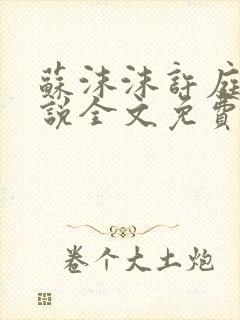 蘇沫沫許庭
說全文免費
卷个大土炮